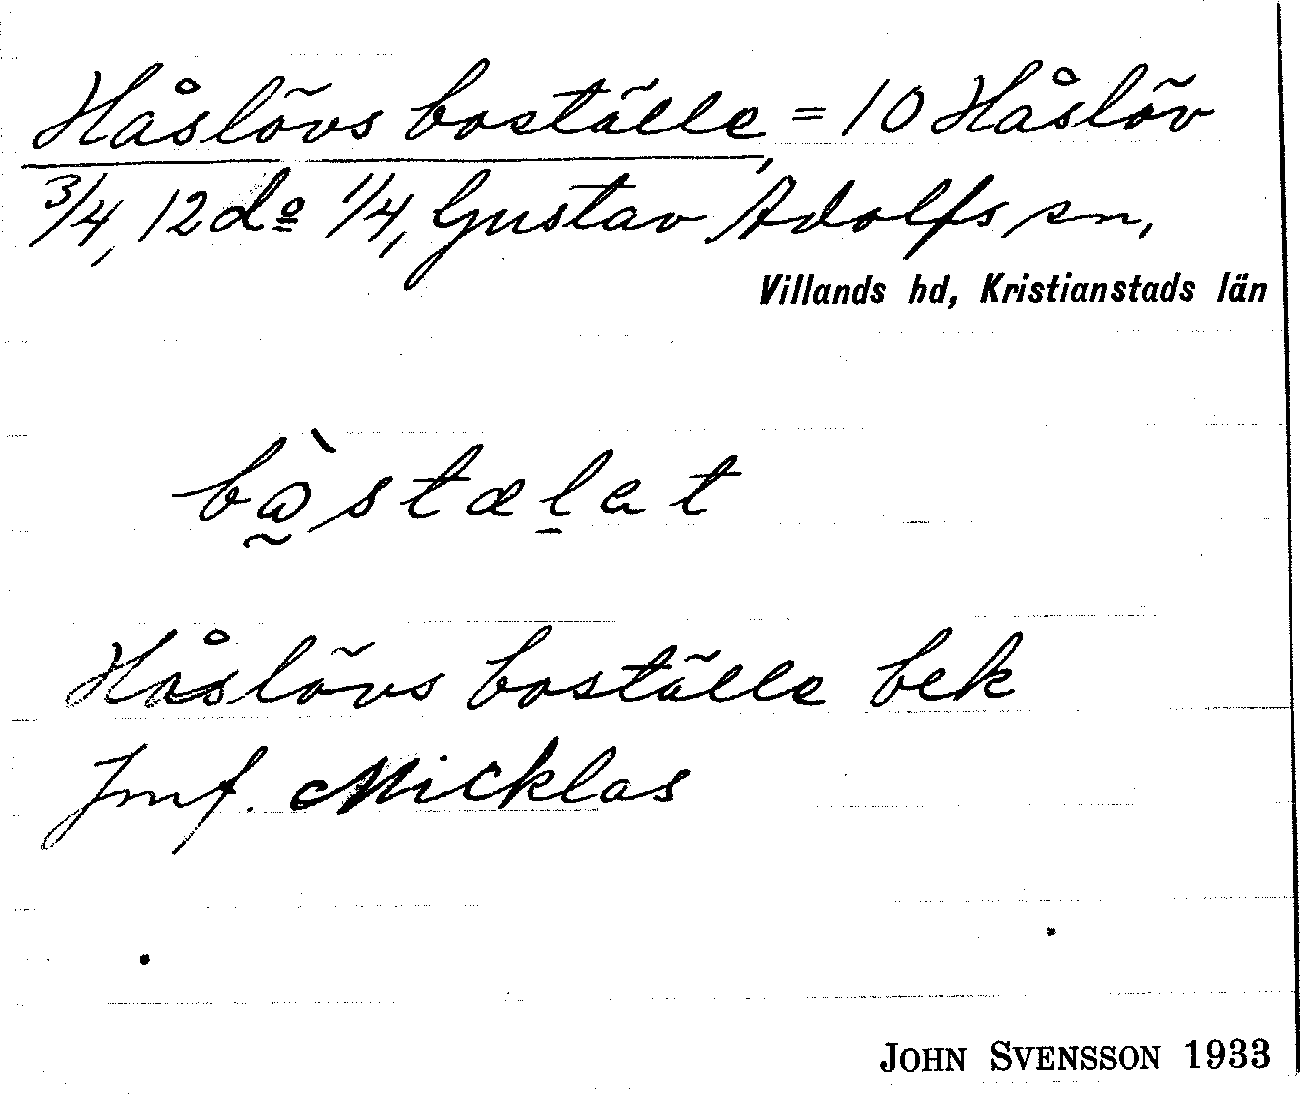 Håslövs boställe, = 10 Håslöv
3/4, 12 dº 1/4, Gustav Adolfs sn,
Villands hd, Kristianstads län
Håslövs boställe bek
Jmf. Micklas
JOHN SVENSSON 1933